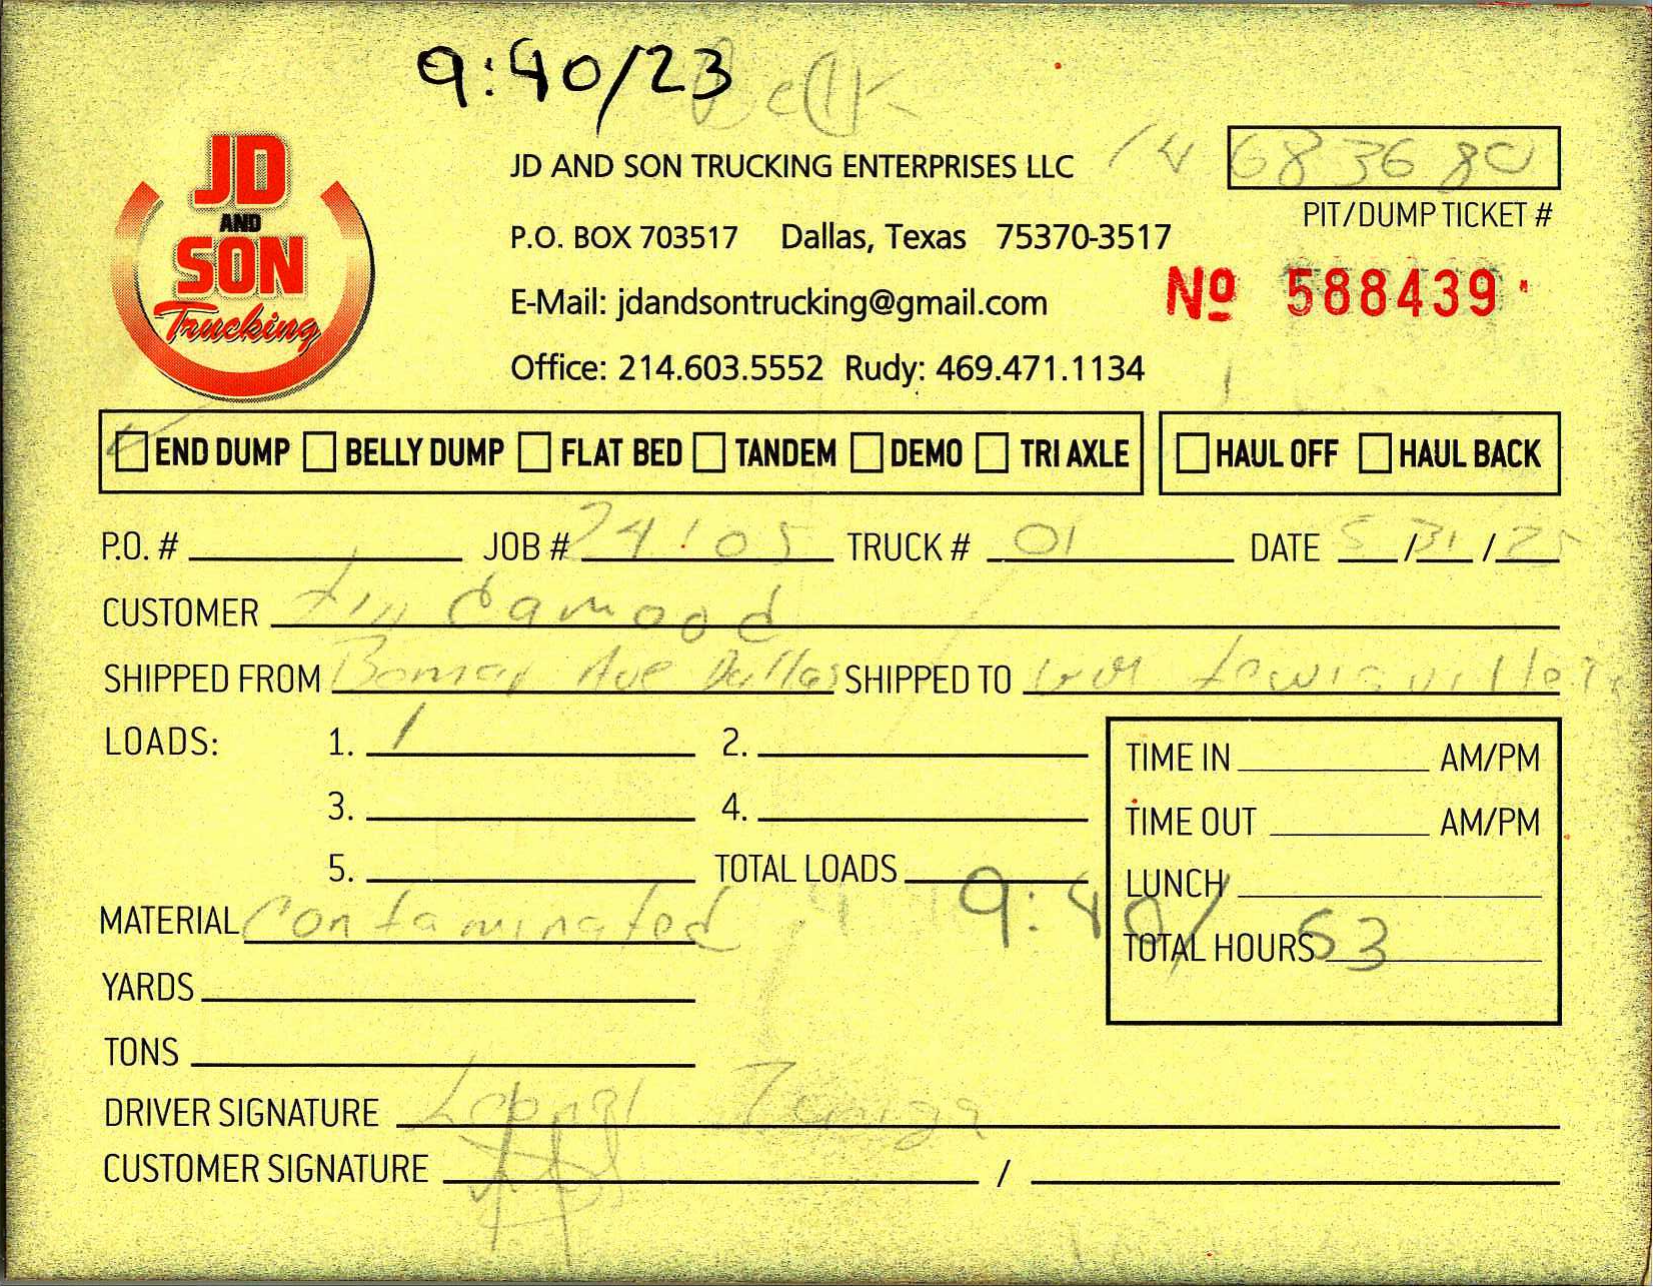 9:40/23
JD
AND
SON
Trucking
JD AND SON TRUCKING ENTERPRISES LLC
683680
PIT/DUMP TICKET #
P.O. BOX 703517 Dallas, Texas 75370-3517
E-Mail: jdandsontrucking@gmail.com
Nº 588439
Office: 214.603.5552 Rudy: 469.471.1134
END DUMP BELLY DUMP FLAT BED TANDEM DEMO TRI AXLE HAUL OFF HAUL BACK
P.O. # JOB # 24105 TRUCK # 01 DATE 5/31/25
CUSTOMER Lindamood
SHIPPED FROM Ave Dallas SHIPPED TO Lewisville
LOADS: 1. 1 2.
3. 4.
5. TOTAL LOADS
TIME IN AM/PM
TIME OUT AM/PM
LUNCH
TOTAL HOURS
9:40/53
MATERIAL Contaminated
YARDS
TONS
DRIVER SIGNATURE
CUSTOMER SIGNATURE /